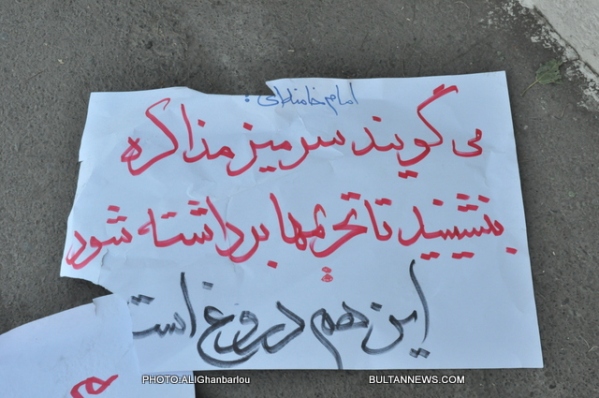 امام خامنه‌ای :
می گویند سر میز مذاکره
بنشینید تا تحریمها برداشته شود
این هم دروغ است
PHOTO:ALIGhanbarlou
BULTANNEWS.COM